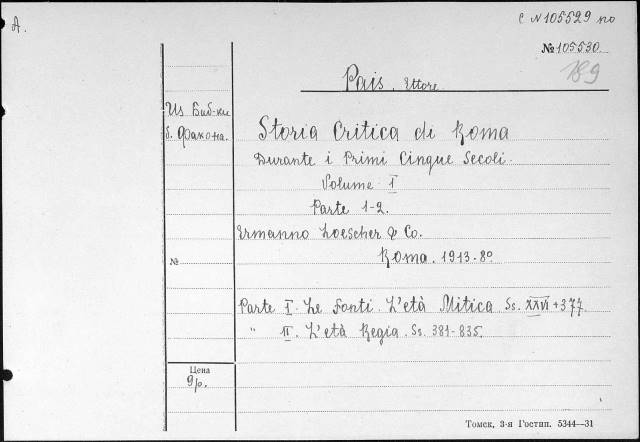 A.
с №105529 по
№105530
189
Pais. Ettore
Из Биб-ки
б. Факона.
Storia Critica di Roma
Durante i Primi Cinque Secoli.
Volume I
Parte 1-2.
Ermanno Loescher & Co.
Roma. 1913-8º
№
Parte I. Le Fonti. L'età Mitica. Ss. XXVI + 377.
" II. L'età Regia. Ss. 381-835.
Цена
9р.
Томск, 3-я Гостип. 5344—31